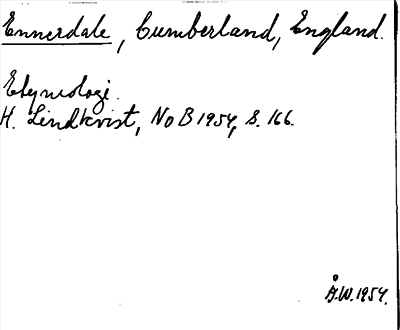 Ennerdale, Cumberland, England.
Etymologi.
H. Lindkvist, NoB 1954, S. 166.
Å.W. 1954.